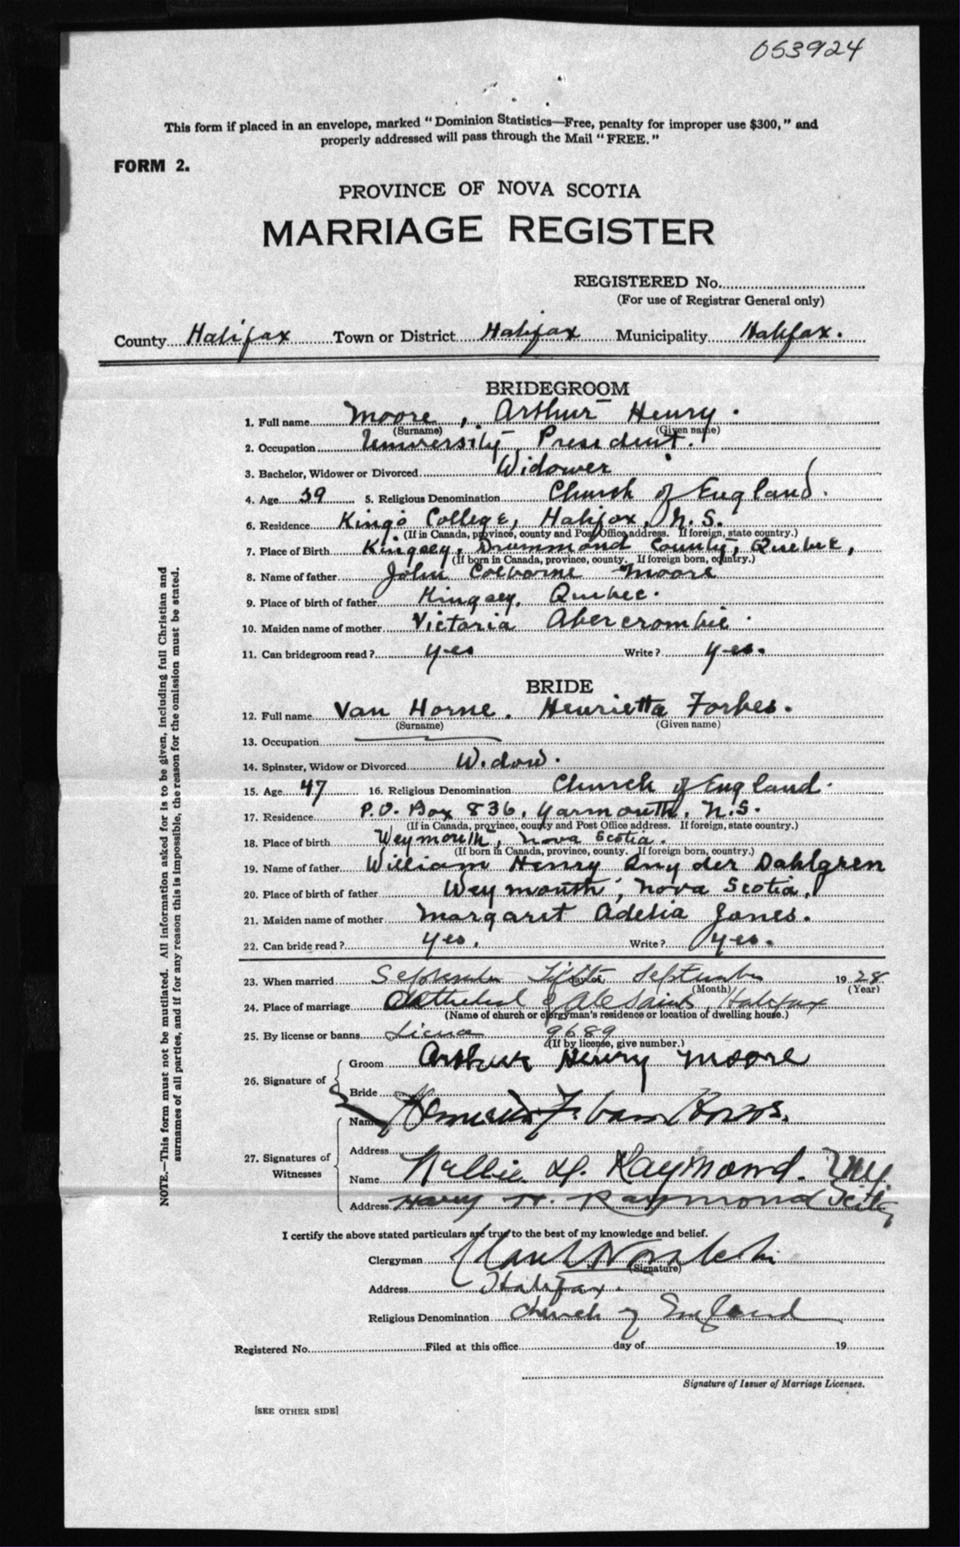 053924
This form if placed in an envelope, marked "Dominion Statistics—Free, penalty for improper use $300," and
properly addressed will pass through the Mail "FREE."
FORM 2.
PROVINCE OF NOVA SCOTIA
MARRIAGE REGISTER
REGISTERED No.
(For use of Registrar General only)
County Halifax Town or District Halifax Municipality Halifax.
BRIDEGROOM
1. Full name Moore, Arthur Henry.
(Surname) (Given name)
2. Occupation University President.
3. Bachelor, Widower or Divorced Widower
4. Age 59 5. Religious Denomination Church of England.
6. Residence King's College, Halifax, N.S.
(If in Canada, province, county and Post Office address. If foreign, state country.)
7. Place of Birth Kingsey, Drummond County, Quebec,
(If born in Canada, province, county. If foreign born, country.)
8. Name of father John Colborne Moore
9. Place of birth of father Kingsey, Quebec.
10. Maiden name of mother Victoria Abercrombie.
11. Can bridegroom read? yes Write? yes.
BRIDE
12. Full name Van Horne. Henrietta Forbes.
(Surname) (Given name)
13. Occupation
14. Spinster, Widow or Divorced Widow.
15. Age 47 16. Religious Denomination Church of England.
17. Residence P.O. Box 836, Yarmouth, N.S.
(If in Canada, province, county and Post Office address. If foreign, state country.)
18. Place of birth Weymouth, Nova Scotia.
(If born in Canada, province, county. If foreign born, country.)
19. Name of father William Henry Snyder Dahlgren
20. Place of birth of father Weymouth, Nova Scotia,
21. Maiden name of mother Margaret Adelia Jones.
22. Can bride read? yes. Write? yes.
23. When married September Fifth September 1928
(Month) (Year)
24. Place of marriage Cathedral of All Saints, Halifax
(Name of church or clergyman's residence or location of dwelling house.)
25. By license or banns License 9689
(If by license, give number.)
26. Signature of
Groom Arthur Henry Moore
Bride Henrietta F. Van Horne.
27. Signatures of
Witnesses
Name
Address
Name Nellie D. Raymond.
Address Harry H. Raymond
I certify the above stated particulars are true to the best of my knowledge and belief.
Clergyman
(Signature)
Address Halifax.
Religious Denomination Church of England
Registered No. Filed at this office day of 19
Signature of Issuer of Marriage Licenses.
[SEE OTHER SIDE]
NOTE.—This form must not be mutilated. All information asked for is to be given, including full Christian and
surnames of all parties, and if for any reason this is impossible, the reason for the omission must be stated.